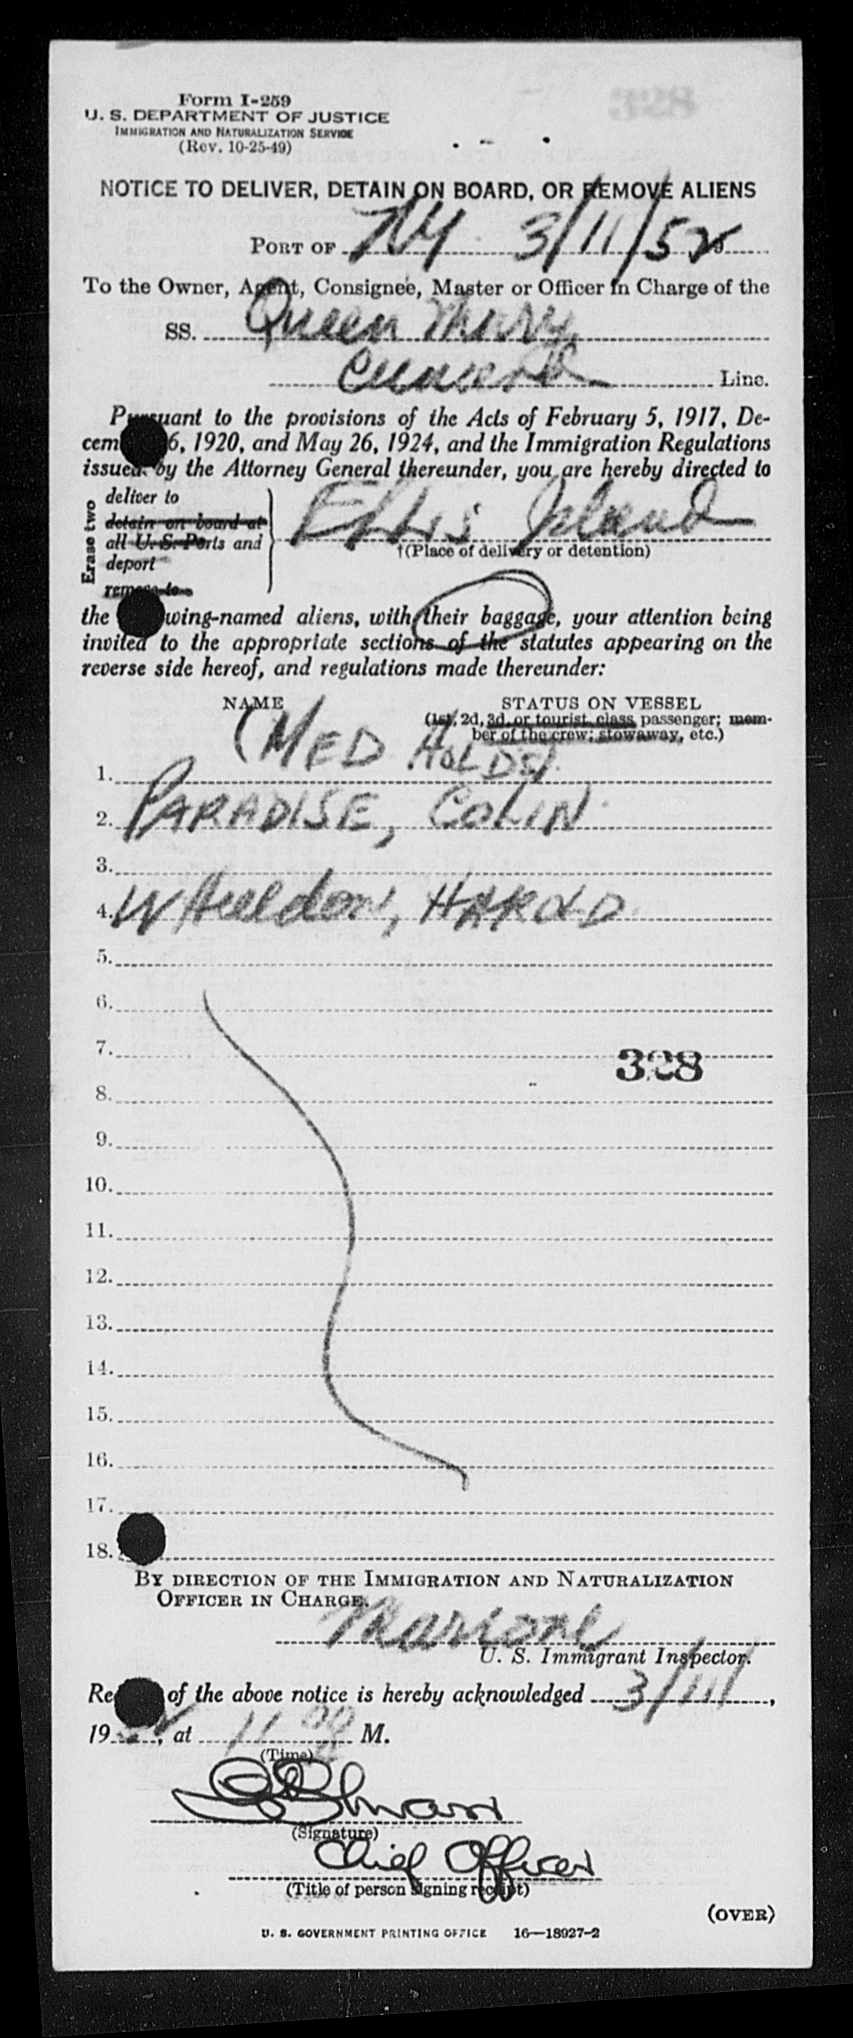 Form I-259
U. S. DEPARTMENT OF JUSTICE
IMMIGRATION AND NATURALIZATION SERVICE
(Rev. 10-25-49)
NOTICE TO DELIVER, DETAIN ON BOARD, OR REMOVE ALIENS
PORT OF NY 3/11/52
To the Owner, Agent, Consignee, Master or Officer in Charge of the
SS. Queen Mary
Cunard Line.
Pursuant to the provisions of the Acts of February 5, 1917, De-
cem 6, 1920, and May 26, 1924, and the Immigration Regulations
issued by the Attorney General thereunder, you are hereby directed to
Erase two
deliver to
detain on board at
all U. S. Ports and
deport
remove to
Ellis Island
†(Place of delivery or detention)
the wing-named aliens, with their baggage, your attention being
invited to the appropriate sections of the statutes appearing on the
reverse side hereof, and regulations made thereunder:
NAME STATUS ON VESSEL
(1st, 2d, 3d, or tourist class passenger; mem-
ber of the crew; stowaway, etc.)
(MED HOLDS)
1.
2. PARADISE, COLIN
3.
4. Wheeldon, HAROLD
5.
6.
7.
328
8.
9.
10.
11.
12.
13.
14.
15.
16.
17.
18.
BY DIRECTION OF THE IMMIGRATION AND NATURALIZATION
OFFICER IN CHARGE.
U. S. Immigrant Inspector.
Re of the above notice is hereby acknowledged 3/11,
19 , at 11 M.
(Time)
(Signature)
Chief Officer
(Title of person signing receipt)
(OVER)
U. S. GOVERNMENT PRINTING OFFICE 16—18927-2